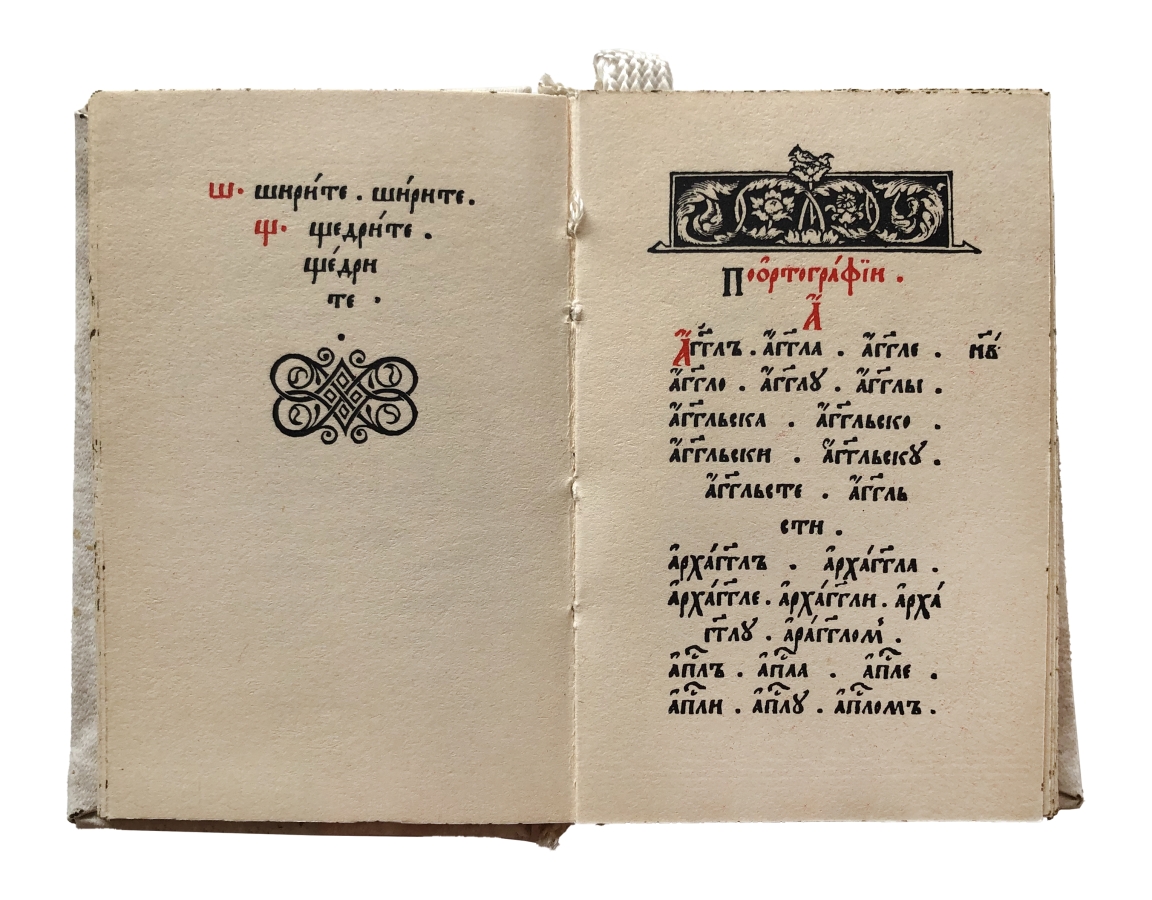 ш· шири́те . ши́рите.
щ· щедри́те .
ще́дри
те .
По о҆ртогра́фїи .
А҆҃
А҆́гг҃лъ . а҆́гг҃ла . а҆́гг҃ле .
а҆́гг҃ло . а҆́гг҃лꙋ . а҆́гг҃лы .
а҆́гг҃льска . а҆́гг҃льско .
а҆́гг҃льски . а҆́гг҃льскꙋ .
а҆́гг҃льсте . а҆́гг҃ль
сти .
а҆рха́гг҃лъ . а҆рха́гг҃ла .
а҆рха́гг҃ле . а҆рха́гг҃ли . а҆рха́
гг҃лꙋ . а҆ра́гг҃лом .
а҆пⷭ҇лъ . а҆пⷭ҇ла . а҆пⷭ҇ле .
а҆пⷭ҇ли . а҆пⷭ҇лꙋ . а҆пⷭ҇ломъ .